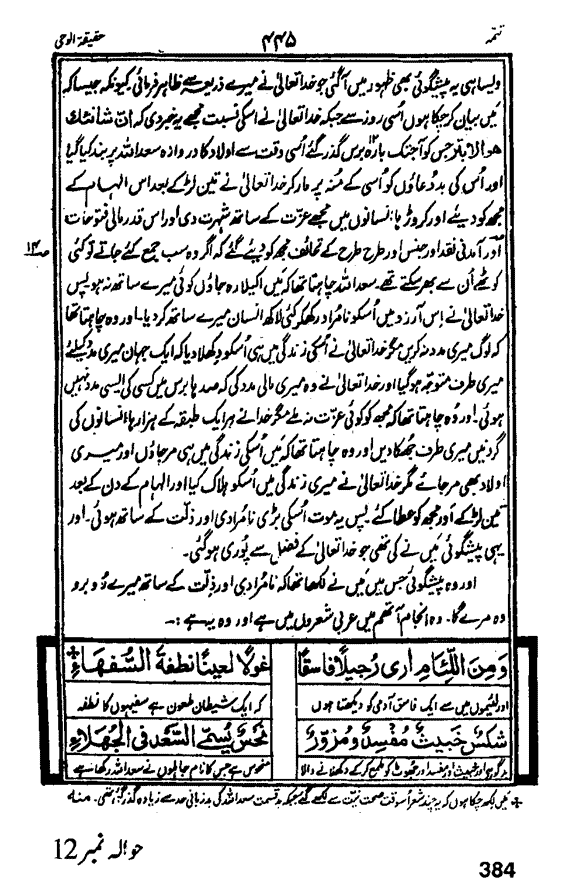 تتمہ ۴۴۵ حقیقۃ الوحی
ویسا ہی یہ پیشگوئی بھی ظہور میں آ گئی جو خدا تعالیٰ نے میرے ذریعہ سے ظاہر فرمائی کیونکہ جیسا کہ
میں بیان کر چکا ہوں اُسی روز سے جبکہ خدا تعالیٰ نے اسکی نسبت مجھے یہ خبر دی کہ ان شانئك
هو الابتر جس کو آجتک بارہ برس گذر گئے اُسی وقت سے اولاد کا دروازہ سعد اللہ پر بند کیا گیا
اور اُس کی بد دعاؤں کو اُسی کے مُنہ پر مار کر خدا تعالیٰ نے تین لڑکے بعد اس الہام کے
مجھ کو دیئے اور کروڑہا انسانوں میں مجھے عزّت کے ساتھ شہرت دی اور اس قدر مالی فتوحات
اور آمدنی نقد اور جنس اور طرح طرح کے تحائف مجھ کو دیئے گئے کہ اگر وہ سب جمع کئے جاتے تو کئی
ص۱۴
کوٹھے اُن سے بھر سکتے تھے۔ سعد اللہ چاہتا تھا کہ میں اکیلا رہ جاؤں کوئی میرے ساتھ نہ ہو پس
خدا تعالیٰ نے اِس آرزو میں اُسکو نامراد رکھکر کئی لاکھ انسان میرے ساتھ کر دیا۔ اور وہ چاہتا تھا
کہ لوگ میری مدد نہ کریں مگر خدا تعالیٰ نے اُسکی زندگی میں ہی اُسکو دکھلا دیا کہ ایک جہان میری مدد کیلئے
میری طرف متوجہ ہو گیا اور خدا تعالیٰ نے وہ میری مالی مدد کی کہ صدہا برس میں کسی کی ایسی مدد نہیں
ہوئی۔ اور وُہ چاہتا تھا کہ مجھ کو کوئی عزت نہ ملے مگر خدا نے ہر ایک طبقہ کے ہزارہا انسانوں کی
گردنیں میری طرف جُھکا دیں اور وہ چاہتا تھا کہ میں اُسکی زندگی میں ہی مر جاؤں اور میری
اولاد بھی مر جائے مگر خدا تعالیٰ نے میری زندگی میں اُسکو ہلاک کیا اور الہام کے دن کے بعد
تین لڑکے اَور مجھ کو عطا کئے پس یہ موت اُسکی بڑی نامرادی اور ذلّت کے ساتھ ہوئی۔ اور
یہی پیشگوئی میں نے کی تھی جو خدا تعالیٰ کے فضل سے پُوری ہو گئی۔
اور وہ پیشگوئی جس میں مَیں نے لکھا تھا کہ نامرادی اور ذلّت کے ساتھ میرے رُوبرو
وہ مرے گا۔ وہ انجام آتھم میں عربی شعروں میں ہے اور وہ یہ ہے :۔
وَمِنَ اللِّئَامِ اَرٰى رُجَيلًا فَاسِقًا غُولًا لَعِينًا نُطْفَةَ السُّفَهَاءِ*
اور لئیموں میں سے ایک فاسق آدمی کو دیکھتا ہوں کہ ایک شیطان ملعون ہے سفیہوں کا نطفہ
شَكِسٌ خَبِيثٌ مُفْسِدٌ وَمُزَوِّرٌ نَحْسٌ يُسَمَّى السَّعْدَ فِي الْجُهَلَاءِ
بدگو ہے اور خبیث اور مفسد اور جُھوٹ کو ملمع کر کے دکھانے والا منحوس ہے جس کا نام جاہلوں نے سعد اللہ رکھا ہے
* میں لکھ چکا ہوں کہ یہ چند شعر اُسوقت صحت نیت سے لکھے گئے جبکہ بد قسمت سعد اللہ کی بد زبانی حد سے زیادہ گذر گئی تھی۔ منہ
حوالہ نمبر 12
384